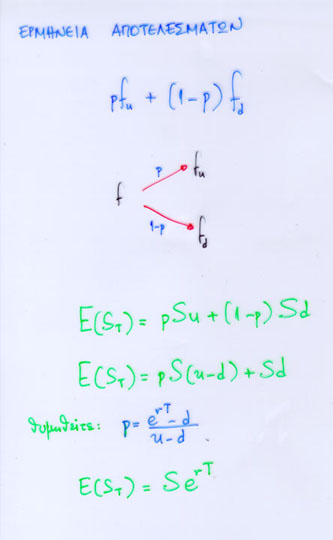 ΕΡΜΗΝΕΙΑ ΑΠΟΤΕΛΕΣΜΑΤΩΝ
pf_u + (1-p) f_d
p
f_u
f
1-p
f_d
E(S_T) = pSu + (1-p) Sd
E(S_T) = pS(u-d) + Sd
θυμηθείτε: p = (e^{rT} - d)/(u-d).
E(S_T) = Se^{rT}